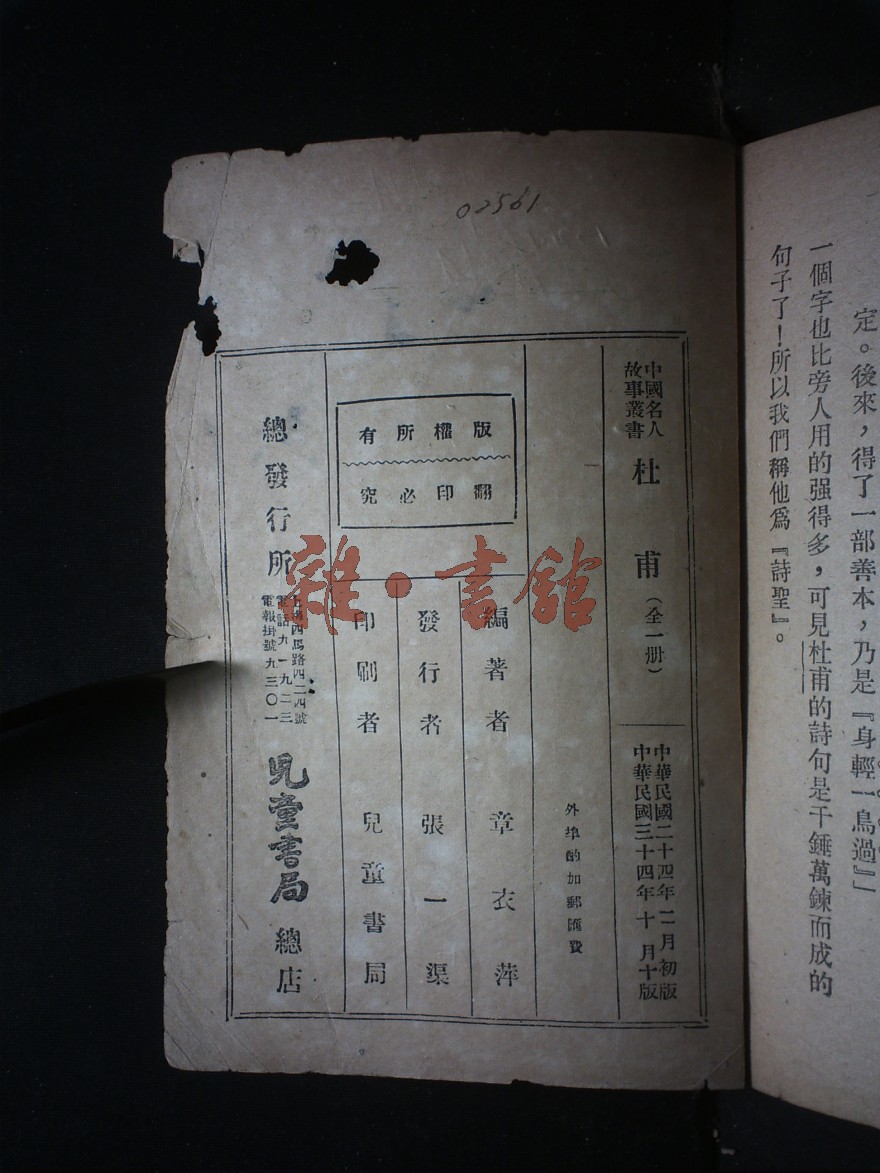 定。後來，得了一部善本，乃是『身輕一鳥過』」
一個字也比旁人用的强得多，可見杜甫的詩句是千錘萬鍊而成的
句子了！所以我們稱他爲『詩聖』。
02561
中國名人
故事叢書
杜甫（全一册）
中華民國二十四年二月初版
中華民國三十四年十月十版
外埠酌加郵匯費
版權所有
翻印必究
編著者 章衣萍
發行者 張一渠
印刷者 兒童書局
總發行所
上海四馬路四二四號
電話九一九二三
電報掛號九三〇一
兒童書局總店
雜·書館